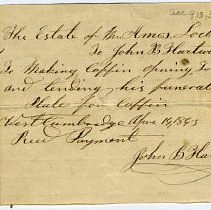 The Estate of Mr Amos Loc
To John B Hartw
To Making Coffin opening To
and tending his funeral
Plate for Coffin
West Cambridge Apri 14 1843
Recd Payment
John B Ha